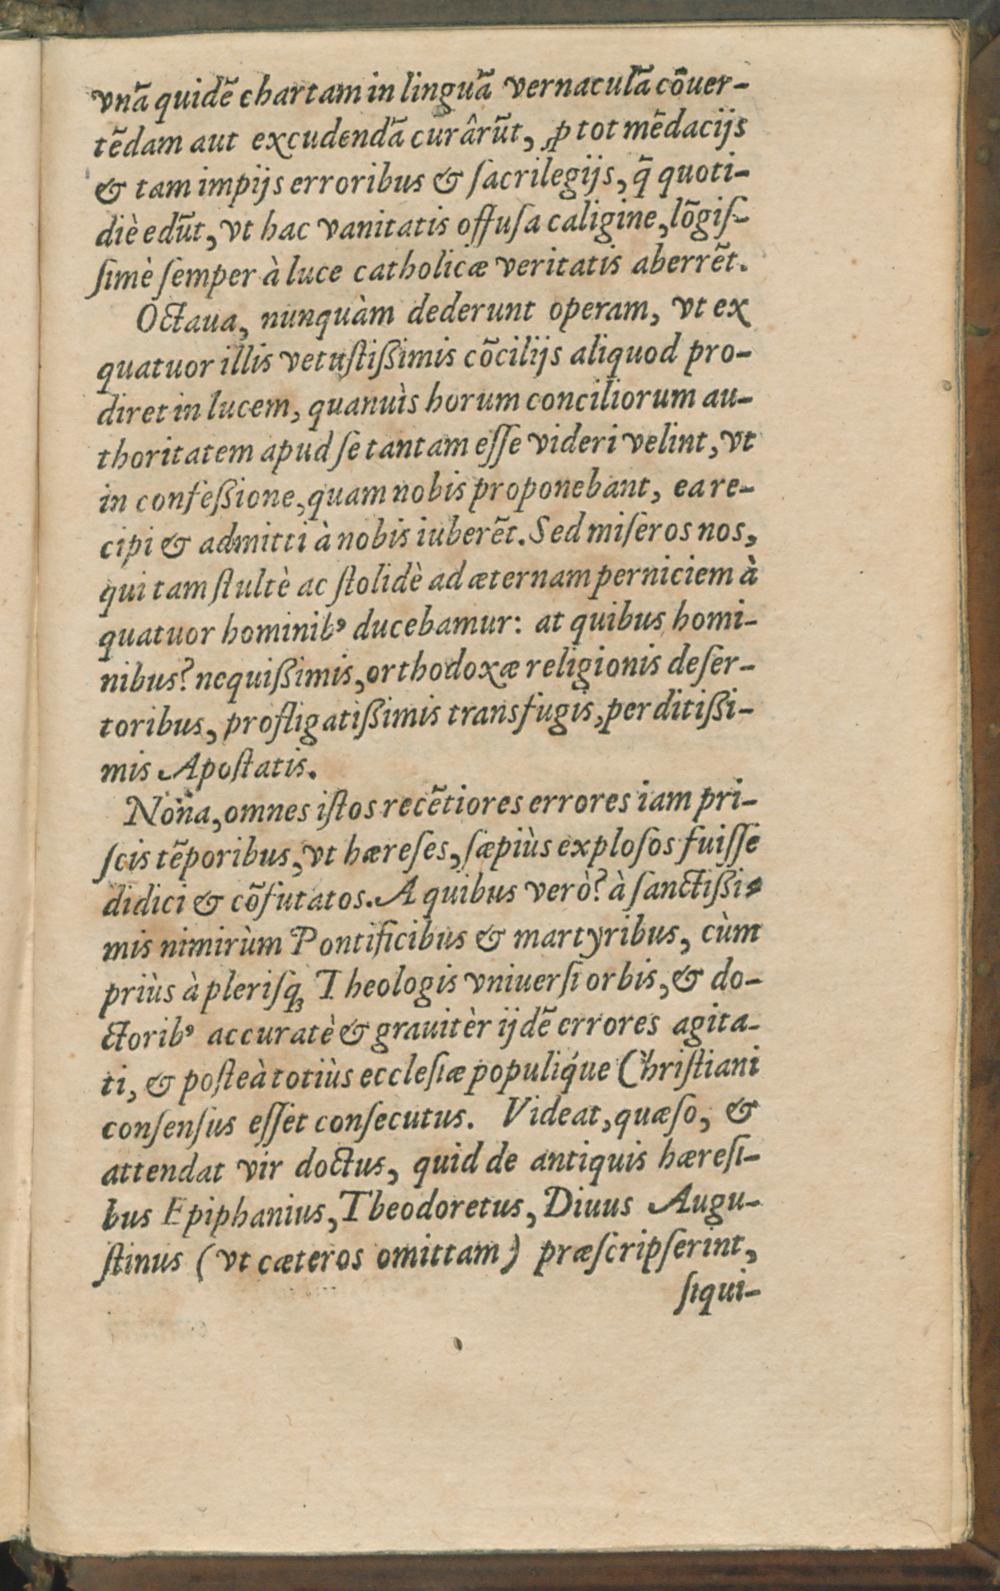 vnā quidē chartam in linguā vernaculā cōuer-
tēdam aut excudendā curârūt, ꝓ tot mēdacijs
& tam impijs erroribus & ſacrilegijs, q̄ quoti-
diè edūt, vt hac vanitatis offuſa caligine, lōgiſ-
ſimè ſemper à luce catholicæ veritatis aberrēt.
Octaua, nunquàm dederunt operam, vt ex
quatuor illis vetuſtißimis cōcilijs aliquod pro-
diret in lucem, quanuìs horum conciliorum au-
thoritatem apud ſe tantam eſſe videri velint, vt
in confeßione, quam nobis proponebant, ea re-
cipi & admitti à nobis iuberēt. Sed miſeros nos,
qui tam ſtultè ac ſtolidè ad æternam perniciem à
quatuor hominibꝰ ducebamur: at quibus homi-
nibus? nequißimis, orthodoxæ religionis deſer-
toribus, profligatißimis transfugis, perditißi-
mis Apoſtatis.
Nona, omnes iſtos recētiores errores iam pri-
ſcis tēporibus, vt hæreſes, ſæpiùs exploſos fuiſſe
didici & cōfutatos. A quibus verò? à ſanctißi-
mis nimirùm Pontificibus & martyribus, cùm
priùs à pleriſq; Theologis vniuerſi orbis, & do-
ctoribꝰ accuratè & grauitèr ijdē errores agita-
ti, & poſteà totiùs eccleſiæ populiq́ue Chriſtiani
conſenſus eſſet conſecutus. Videat, quæſo, &
attendat vir doctus, quid de antiquis hæreſi-
bus Epiphanius, Theodoretus, Diuus Augu-
ſtinus (vt cæteros omittam) præſcripſerint,
ſiqui-